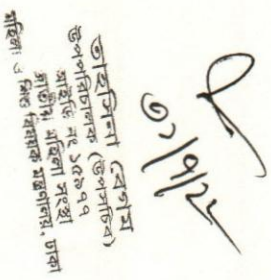 তাহমিনা বেগম
উপপরিচালক (উপসচিব)
আইডি নং ১৫৬৭৭
জাতীয় মহিলা সংস্থা
মহিলা ও শিশু বিষয়ক মন্ত্রণালয়, ঢাকা
৩১/৭/২২